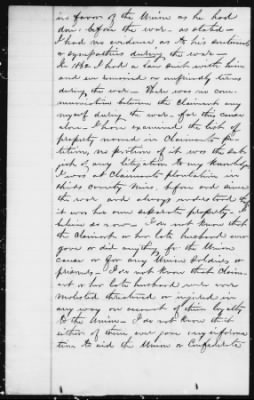 in favor of the Union as he had
done before the war - as stated -
I had no evidence as to his sentiments
or sympathies during the war -
In 1862 I had a law suit with him
and we [were] on unfriendly terms
during the war - There was no com-
munication between the Claimant and
myself during the war - for this cause
alone - I have examined the list of
property named in Claimants Pe-
tition, no portion of it was the sub-
ject of any litigation to my knowledge
I was at Claimants plantation in
this county Miss, before and since
the war and always understood that
it was her own separate property - I
believe so now - I do not know that
the Claimant or her late husband ever
gave or did anything for the Union
cause or for any Union Soldiers or
friends - I do not know that Claim-
ant or her late husband were ever
molested threatened or injured in
any way on account of their loyalty
to the Union - I do not know that
either of them ever gave any informa-
tion to aid the Union or Confederate